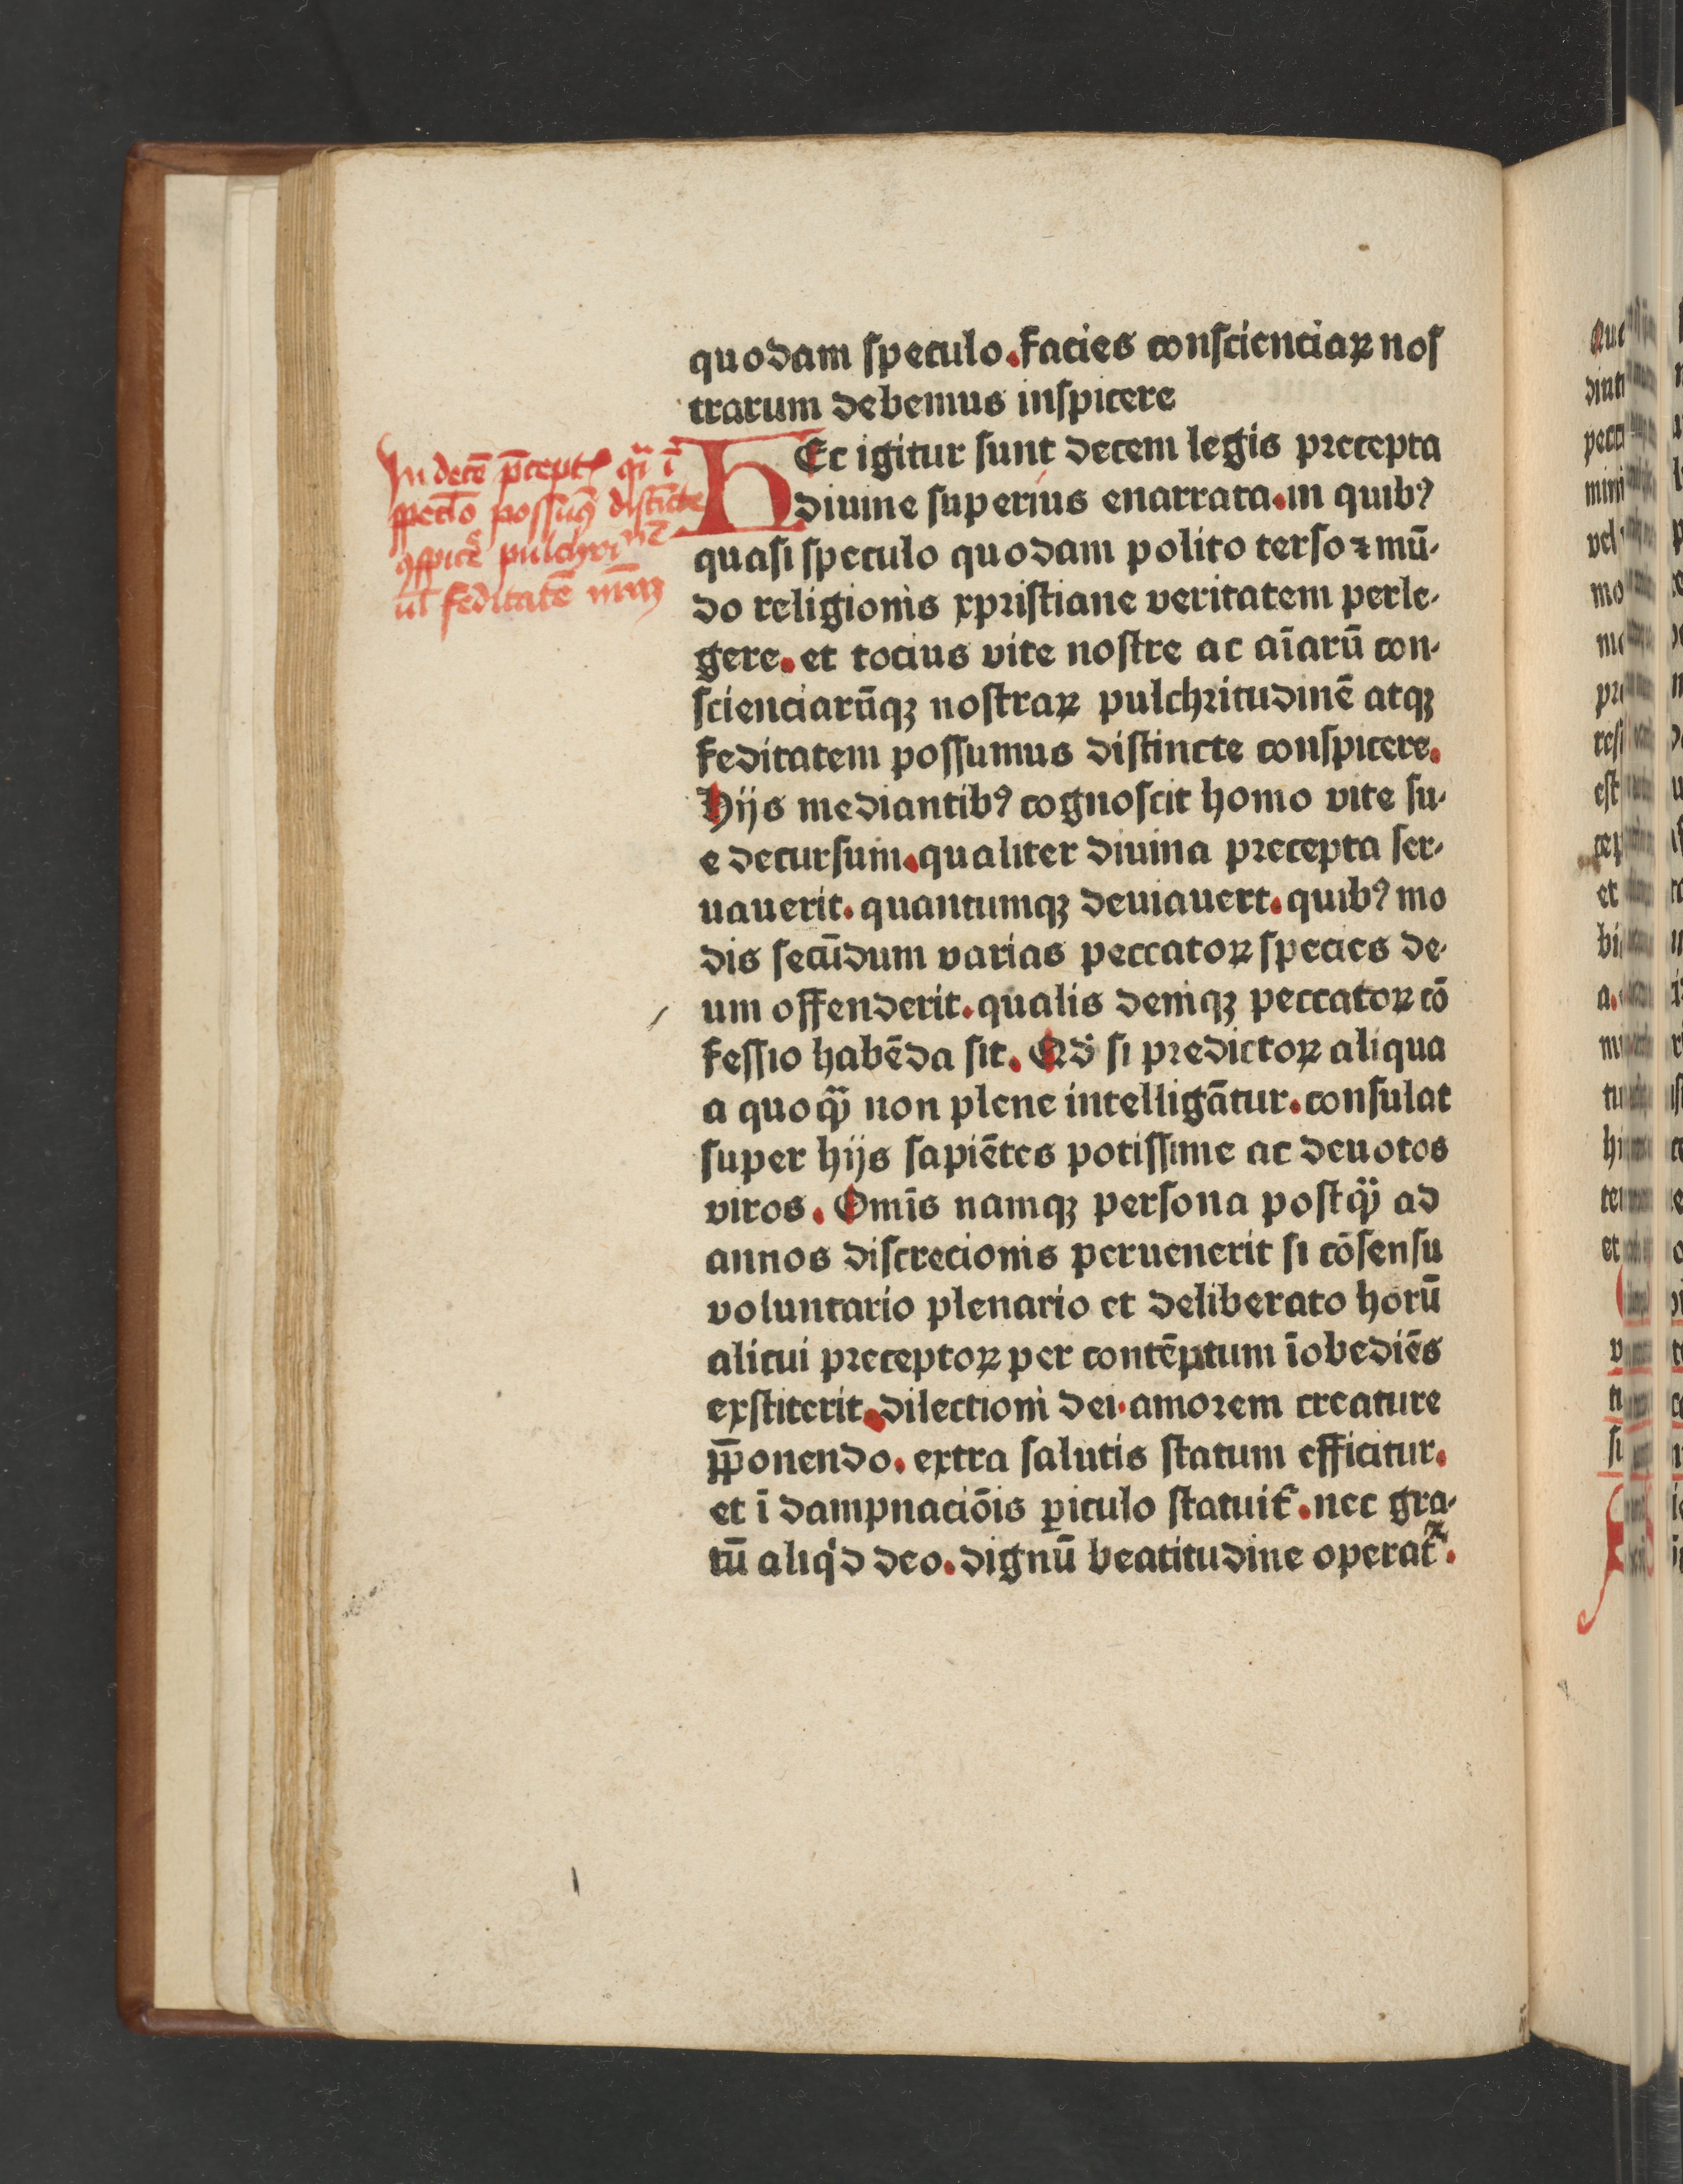 quodam ſpeculo.facies conſcienciaꝝ noſ
trarum debemus inſpicere
HEc igitur ſunt decem legis precepta
diuine ſuperius enarrata.in quibꝰ
quaſi ſpeculo quodam polito terſo ⁊ mū-
do religionis xpriſtiane veritatem perle-
gere. et tocius vite noſtre ac aīarū con-
ſcienciarūqꝫ noſtraꝝ pulchritudinē atqꝫ
feditatem poſſumus diſtincte conſpicere.
Hijs mediantibꝰ cognoſcit homo vite ſu-
e decurſum.qualiter diuina precepta ſer-
uauerit. quantumqꝫ deuiauert. quibꝰ mo
dis ſecūdum varias peccatoꝝ ſpecies de-
um offenderit.qualis deniqꝫ peccatoꝝ cō
feſſio habēda ſit. Qd̕ ſi predictoꝝ aliqua
a quoq̄ȝ non plene intelligātur.conſulat
ſuper hijs ſapiētes potiſſime ac deuotos
viros. Omīs namqꝫ perſona poſtq̄ȝ ad
annos diſcrecionis peruenerit ſi cōſenſu
voluntario plenario et deliberato horū
alicui preceptoꝝ per contēptum īobediēs
exſtiterit.dilectioni dei.amorem creature
p̄ponendo. extra ſalutis ſtatum efficitur.
et ī dampnaciōis ꝑiculo ſtatuit᷑.nec gra-
tū aliq̇d deo.dignū beatitudine operat᷑.
In decē p̄cept
poſſuꝰ diſtīcte
feditatē nr̄aꝝ